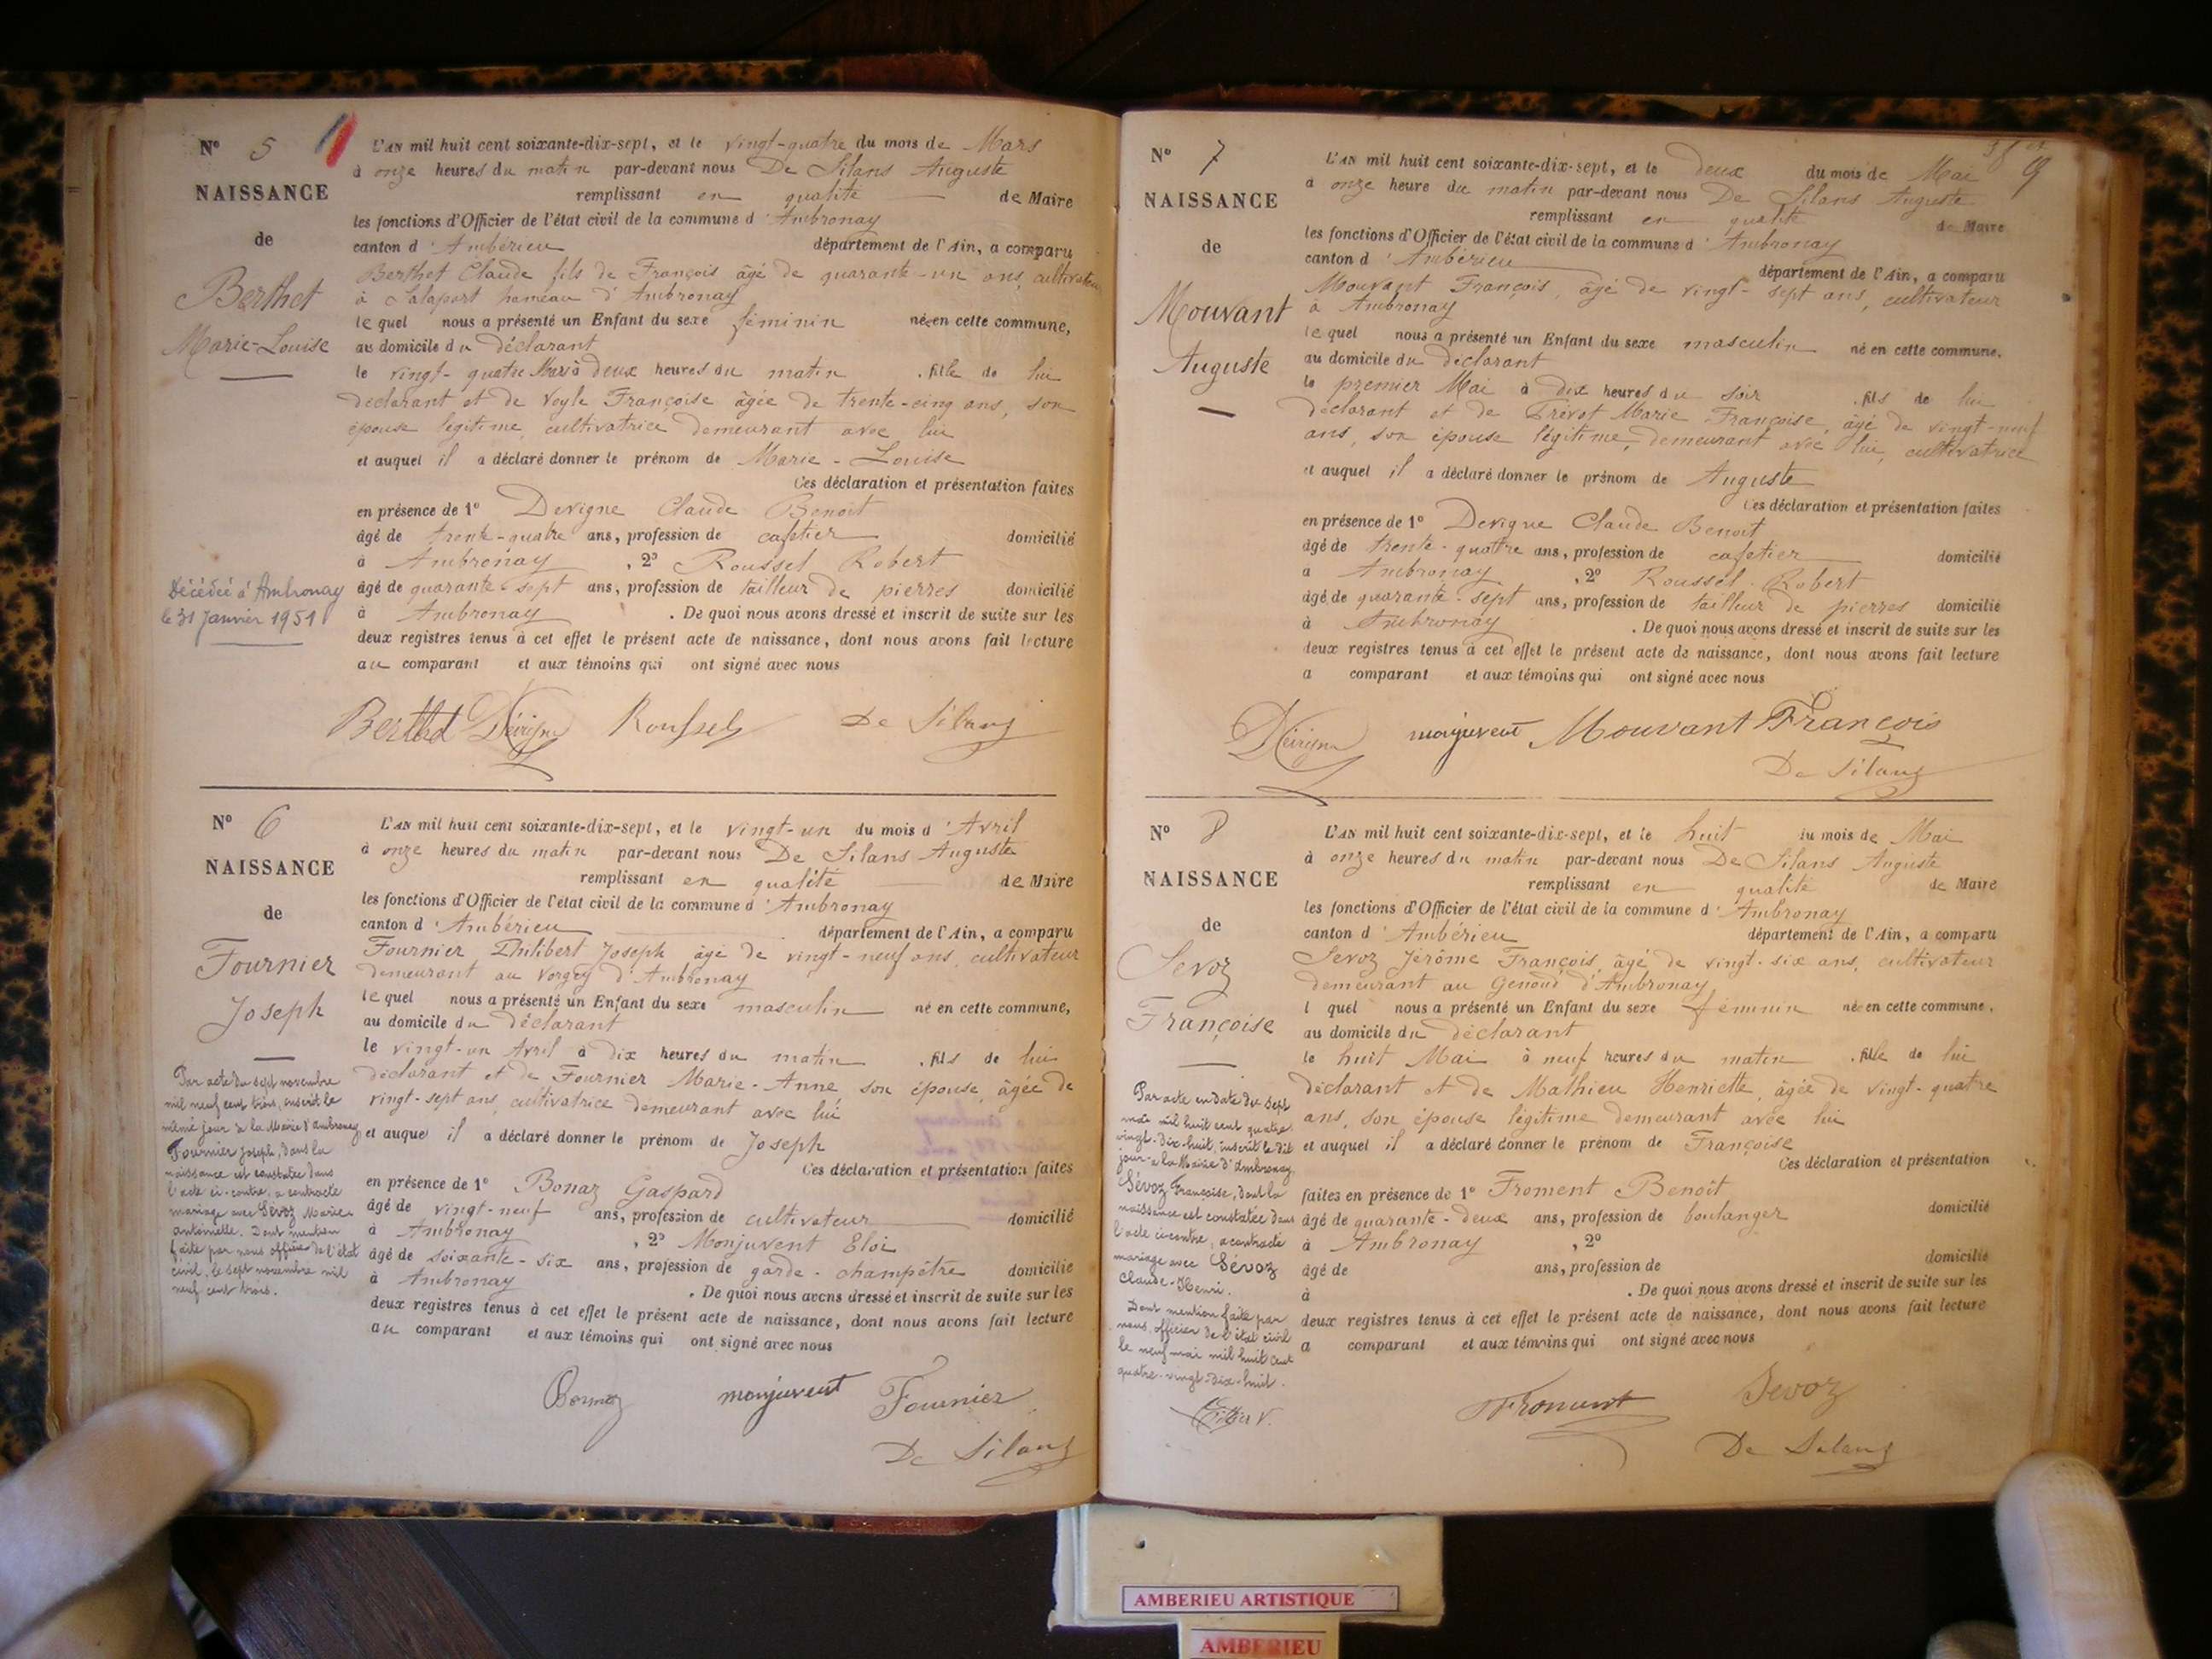 N° 5
NAISSANCE
de
Berthet
Marie-Louise
Décédée à Ambronay
le 31 Janvier 1951
L'AN mil huit cent soixante-dix-sept, et le vingt-quatre du mois de Mars
à onze heures du matin par-devant nous De Silans Auguste
remplissant en qualité de Maire
les fonctions d'Officier de l'état civil de la commune d'Ambronay
canton d'Ambérieu département de l'Ain, a comparu
Berthet Claude fils de François âgé de quarante-un ans, cultivateur
à Salaport hameau d'Ambronay
lequel nous a présenté un Enfant du sexe féminin née en cette commune,
au domicile du déclarant
le vingt-quatre Mars à deux heures du matin . fille de lui
déclarant et de Veyle Françoise âgée de trente-cinq ans, son
épouse légitime, cultivatrice demeurant avec lui
et auquel il a déclaré donner le prénom de Marie-Louise
Ces déclaration et présentation faites
en présence de 1° Devigne Claude Benoit
âgé de trente-quatre ans, profession de cafetier domicilié
à Ambronay , 2° Roussel Robert
âgé de quarante-sept ans, profession de tailleur de pierres domicilié
à Ambronay . De quoi nous avons dressé et inscrit de suite sur les
deux registres tenus à cet effet le présent acte de naissance, dont nous avons fait lecture
au comparant et aux témoins qui ont signé avec nous
Berthet Devigne Roussel De Silans
N° 6
NAISSANCE
de
Fournier
Joseph
Par acte du sept novembre
mil neuf cent trois, inscrit le
même jour à la Mairie d'Ambronay
Fournier Joseph, dans la
naissance est constatée dans
l'acte ci-contre, a contracté
mariage avec Sévoz Marie
antoinette. Dont mention
faite par nous officier de l'état
civil, le sept novembre mil
neuf cent trois.
L'AN mil huit cent soixante-dix-sept, et le vingt-un du mois d'Avril
à onze heures du matin par-devant nous De Silans Auguste
remplissant en qualité de Maire
les fonctions d'Officier de l'état civil de la commune d'Ambronay
canton d'Ambérieu département de l'Ain, a comparu
Fournier Philibert Joseph âgé de vingt-neuf ans, cultivateur
demeurant au Vorgey d'Ambronay
lequel nous a présenté un Enfant du sexe masculin né en cette commune,
au domicile du déclarant
le vingt-un Avril à dix heures du matin . fils de lui
déclarant et de Fournier Marie-Anne, son épouse, âgée de
vingt-sept ans, cultivatrice demeurant avec lui
et auquel il a déclaré donner le prénom de Joseph
Ces déclaration et présentation faites
en présence de 1° Bonaz Gaspard
âgé de vingt-neuf ans, profession de cultivateur domicilié
à Ambronay , 2° Monjuvent Eloi
âgé de soixante-six ans, profession de garde-champêtre domicilié
à Ambronay . De quoi nous avons dressé et inscrit de suite sur les
deux registres tenus à cet effet le présent acte de naissance, dont nous avons fait lecture
au comparant et aux témoins qui ont signé avec nous
Bonnaz monjuvent Fournier
De Silans
N° 7
NAISSANCE
de
Mouvant
Auguste
L'AN mil huit cent soixante-dix-sept, et le deux du mois de Mai
à onze heure du matin par-devant nous De Silans Auguste
remplissant en qualité de Maire
les fonctions d'Officier de l'état civil de la commune d'Ambronay
canton d'Ambérieu département de l'Ain, a comparu
Mouvant François, âgé de vingt-sept ans, cultivateur
à Ambronay
lequel nous a présenté un Enfant du sexe masculin né en cette commune.
au domicile du déclarant
le premier Mai à dix heures du soir . fils de lui
déclarant et de Prévot Marie Françoise, âgé de vingt-neuf
ans, son épouse légitime, demeurant avec lui, cultivatrice
et auquel il a déclaré donner le prénom de Auguste
Ces déclaration et présentation faites
en présence de 1° Devigne Claude Benoit
âgé de trente-quatre ans, profession de cafetier domicilié
à Ambronay , 2° Roussel Robert
âgé de quarante-sept ans, profession de tailleur de pierres domicilié
à Ambronay . De quoi nous avons dressé et inscrit de suite sur les
deux registres tenus à cet effet le présent acte de naissance, dont nous avons fait lecture
a comparant et aux témoins qui ont signé avec nous
Devigne monjuvent Mouvant François
De Silans
N° 8
NAISSANCE
de
Sevoz
Françoise
Par acte en date du sept
mai mil huit cent quatre
vingt-dix-huit, inscrit le dit
jour à la Mairie d'Ambronay
Sévoz Françoise, dont la
naissance est constatée dans
l'acte ci-contre, a contracté
mariage avec Sévoz
Claude-Henri.
Dont mention faite par
nous, officier de l'état civil
le neuf mai mil huit cent
quatre-vingt-dix-huit.
L'AN mil huit cent soixante-dix-sept, et le huit du mois de Mai
à onze heures du matin par-devant nous De Silans Auguste
remplissant en qualité de Maire
les fonctions d'Officier de l'état civil de la commune d'Ambronay
canton d'Ambérieu département de l'Ain, a comparu
Sevoz Jérôme François, âgé de vingt-six ans, cultivateur
demeurant au Genoud d'Ambronay
l quel nous a présenté un Enfant du sexe féminin née en cette commune,
au domicile du déclarant
le huit Mai à neuf heures du matin . fille de lui
déclarant et de Mathieu Henriette, âgée de vingt-quatre
ans, son épouse légitime demeurant avec lui
et auquel il a déclaré donner le prénom de Françoise
Ces déclaration et présentation
faites en présence de 1° Froment Benoît
âgé de quarante-deux ans, profession de boulanger domicilié
à Ambronay , 2°
âgé de ans, profession de domicilié
à . De quoi nous avons dressé et inscrit de suite sur les
deux registres tenus à cet effet le présent acte de naissance, dont nous avons fait lecture
a comparant et aux témoins qui ont signé avec nous
Froment Sevoz
De Silans
AMBERIEU ARTISTIQUE
AMBERIEU